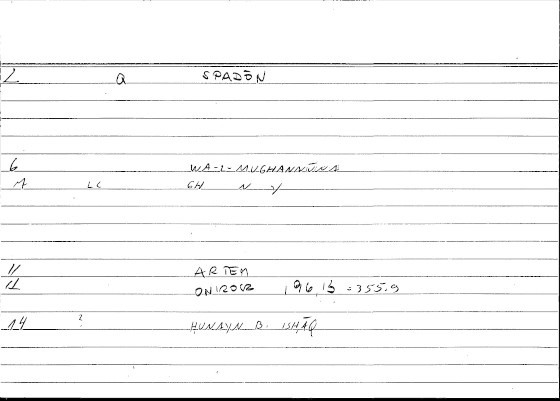 2 a SPADŌN
6 WA-L-MUGHANNŪNA
LC GH N Y
11 ARTEM
12 ONIROCR 196,13 = 355.9
14 ? ḤUNAYN B. ISḤĀQ